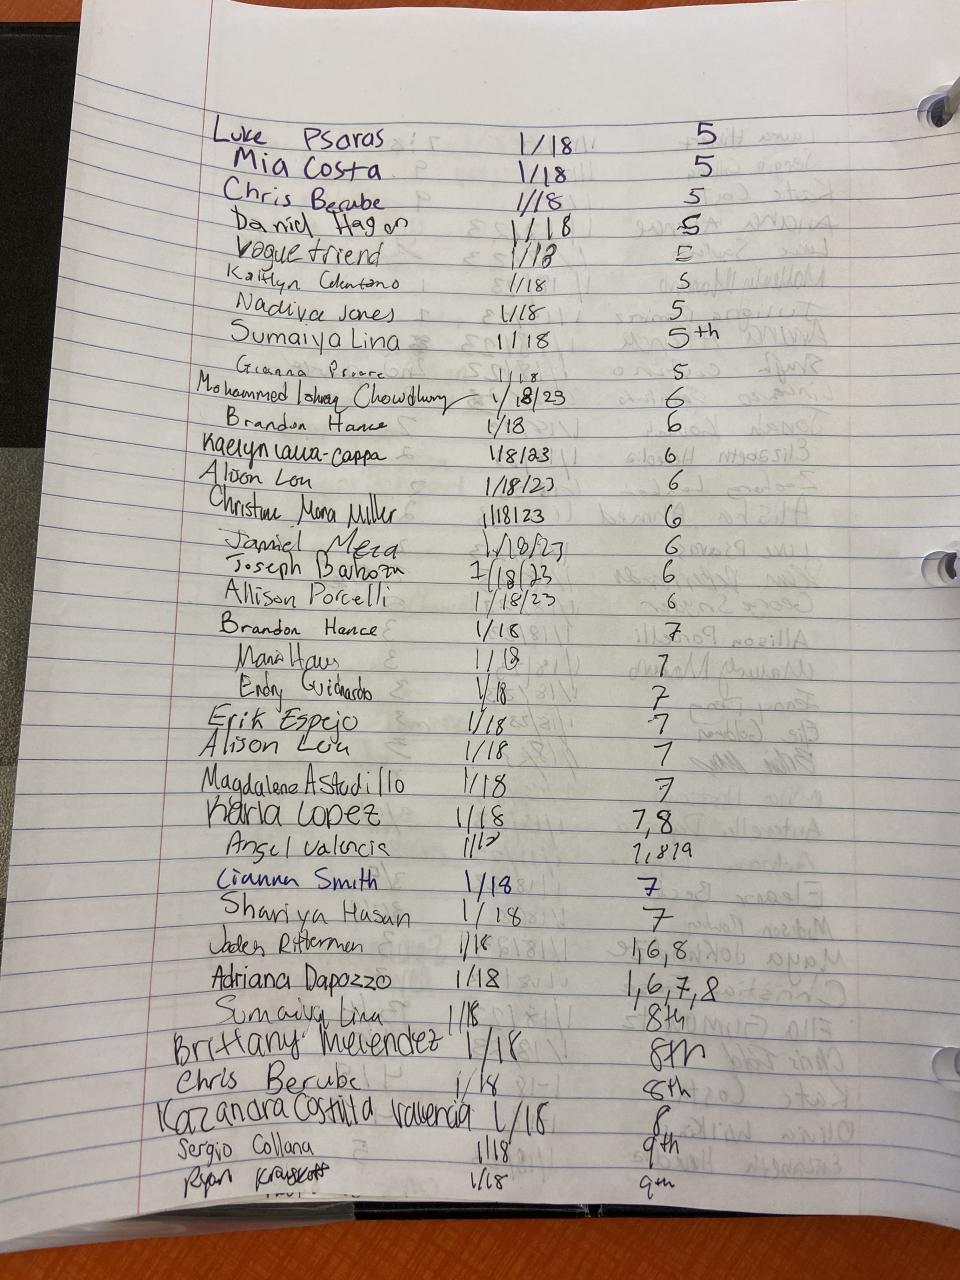 Luke Psaras 1/18 5
Mia Costa 1/18 5
Chris Berube 1/18 5
Daniel Hagon 1/18 5
Vogue friend 1/18 5
Kaitlyn Celentano 1/18 5
Nadiva Jones 1/18 5
Sumaiya Lina 1/18 5th
Gianna 1/18 5
Mohammed Chowdhury 1/18/23 6
Brandon Hance 1/18 6
Kaelyn Lauia-Cappa 1/18/23 6
Alison Lou 1/18/23 6
Christine Mona Miller 1/18/23 6
Jamiel Meza 1/18/23 6
Joseph Barboza 1/18/23 6
Allison Porcelli 1/18/23 6
Brandon Hance 1/18 7
Maria Haws 1/18 7
Endry Guichardo 1/18 7
Erik Espejo 1/18 7
Alison Lou 1/18 7
Magdalena Astudillo 1/18 7
Karla Lopez 1/18 7,8
Angel Valencia 1/18 7,8,9
Cianna Smith 1/18 7
Shariya Hasan 1/18 7
Jaden Ritterman 1/18 1,6,8
Adriana Dapozzo 1/18 1,6,7,8
Sumaiya Lina 1/18 8th
Brittany Melendez 1/18 8th
Chris Berube 1/18 8th
Kazandra Costilla Valencia 1/18 8
Sergio Collana 1/18 9th
Ryan Krauskoff 1/18 9th